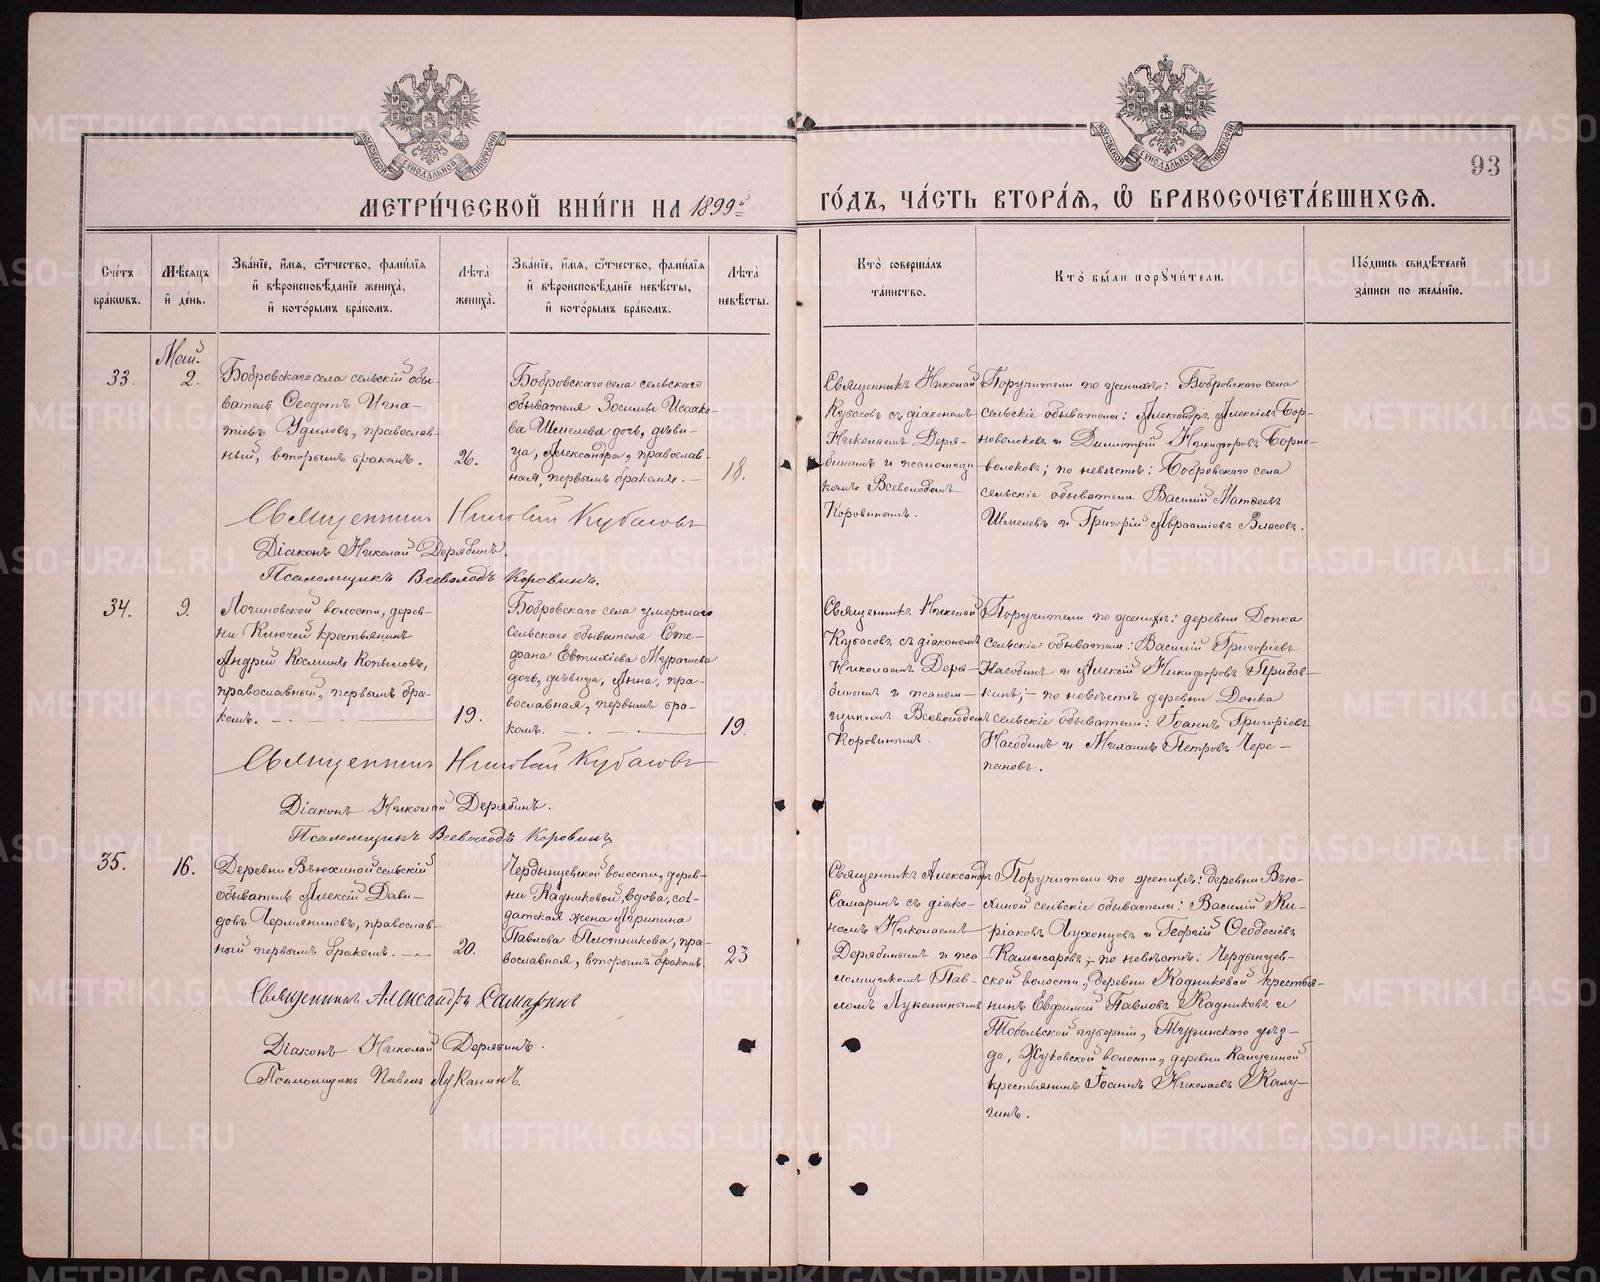 МОСКОВСКОЙ СѴНОДАЛЬНОЙ ТИПОГРАФІИ
МОСКОВСКОЙ СѴНОДАЛЬНОЙ ТИПОГРАФІИ
93
МЕТРИ́ЧЕСКОЙ КНИ́ГИ НА 1899й
ГО́ДЪ, ЧА́СТЬ ВТОРА́Я, Ѽ БРАКОСОЧЕТА́ВШИХСЯ.
Сче́тъ бра́кѡвъ.
Мѣ́сяцъ и҆ де́нь.
Зва́нїе, и҆́мя, ѻ҆́тчество, фами́лїя и҆ вѣроисповѣ́данїе жениха̀, и҆ кото́рымъ бра́комъ.
Лѣ́та̀ жениха̀.
Зва́нїе, и҆́мя, ѻ҆́тчество, фами́лїя и҆ вѣроисповѣ́данїе невѣ́сты, и҆ кото́рымъ бра́комъ.
Лѣ́та̀ невѣ́сты.
Кто̀ соверша́лъ та́инство.
Кто̀ бы́ли порꙋчи́тели.
По́дпись свидѣ́телей за́писи по жела́нїю.
33.
Май.
2.
Бобровскаго села сельскій обы-
ватель Ѳеодотъ Игна-
тіевъ Удиловъ, православ-
ный, вторымъ бракомъ.
26.
Бобровскаго села сельскаго
обывателя Зосимы Исаако-
ва Шмелева дочь, дѣви-
ца, Александра, православ-
ная, первымъ бракомъ. —
18.
Священникъ Николай
Кубасовъ съ діакономъ
Николаемъ Деря-
бинымъ и псаломщи-
комъ Всеволодомъ
Коровинымъ.
Поручители по женихѣ: Бобровскаго села
сельскіе обыватели: Александръ Алексіевъ Бор-
новолоковъ и Димитрій Никифоровъ Борно-
волоковъ; по невѣстѣ: Бобровскаго села
сельскіе обыватели Василій Матѳеевъ
Шмелевъ и Григорій Авраамїевъ Власовъ.
Священникъ Николай Кубасовъ
Діаконъ Николай Дерябинъ.
Псаломщикъ Всеволодъ Коровинъ.
34.
9.
Логиновской волости, дерев-
ни Ключей крестьянинъ
Андрей Косминъ Копыловъ,
православный, первымъ бра-
комъ.
19.
Бобровскаго села умершаго
сельскаго обывателя Сте-
фана Евтихіева Мурачева
дочь, дѣвица, Анна, пра-
вославная, первымъ бра-
комъ.
19.
Священникъ Николай
Кубасовъ съ діакономъ
Николаемъ Деря-
бинымъ и псалом-
щикомъ Всеволодомъ
Коровинымъ.
Поручители по женихѣ: деревни Донка
сельскіе обыватели: Василій Григоріевъ
Насобинъ и Алексій Никифоровъ Грибов-
кинъ; — по невѣстѣ деревни Донка
сельскіе обыватели: Іоаннъ Григоріевъ
Насобинъ и Михаилъ Петровъ Чере-
пановъ.
Священникъ Николай Кубасовъ
Діаконъ Николай Дерябинъ.
Псаломщикъ Всеволодъ Коровинъ
35.
16.
Деревни Вьюхиной сельскій
обыватель Алексій Дави-
довъ Чермяниновъ, православ-
ный первымъ бракомъ. —
20.
Чердынцевской волости, дерев-
ни Кадниковой, вдова, сол-
датская жена Агрипина
Павлова Плотникова, пра-
вославная, вторымъ бракомъ.
23
Священникъ Александръ
Самаринъ съ діако-
номъ Николаемъ
Дерябинымъ и пса
ломщикомъ Пав-
ломъ Луканинымъ
Поручители по женихѣ: деревни Вью-
хиной сельскіе обыватели: Василій Ки-
ріаковъ Чухонцевъ и Георгій Ѳеодосіевъ
Камисаровъ; по невѣстѣ: Чердынцев-
ской волости, деревни Кадниковой крестья-
нинъ Евфимій Павловъ Кадниковъ и
Тобольской губерніи, Туринскаго уѣз-
да, Жуковской волости, деревни Калугиной
крестьянинъ Іоаннъ Николаевъ Калу-
гинъ.
Священникъ Александръ Самаринъ
Діаконъ Николай Дерябинъ.
Псаломщикъ Павелъ Луканинъ.
METRIKI.GASO-URAL.RU